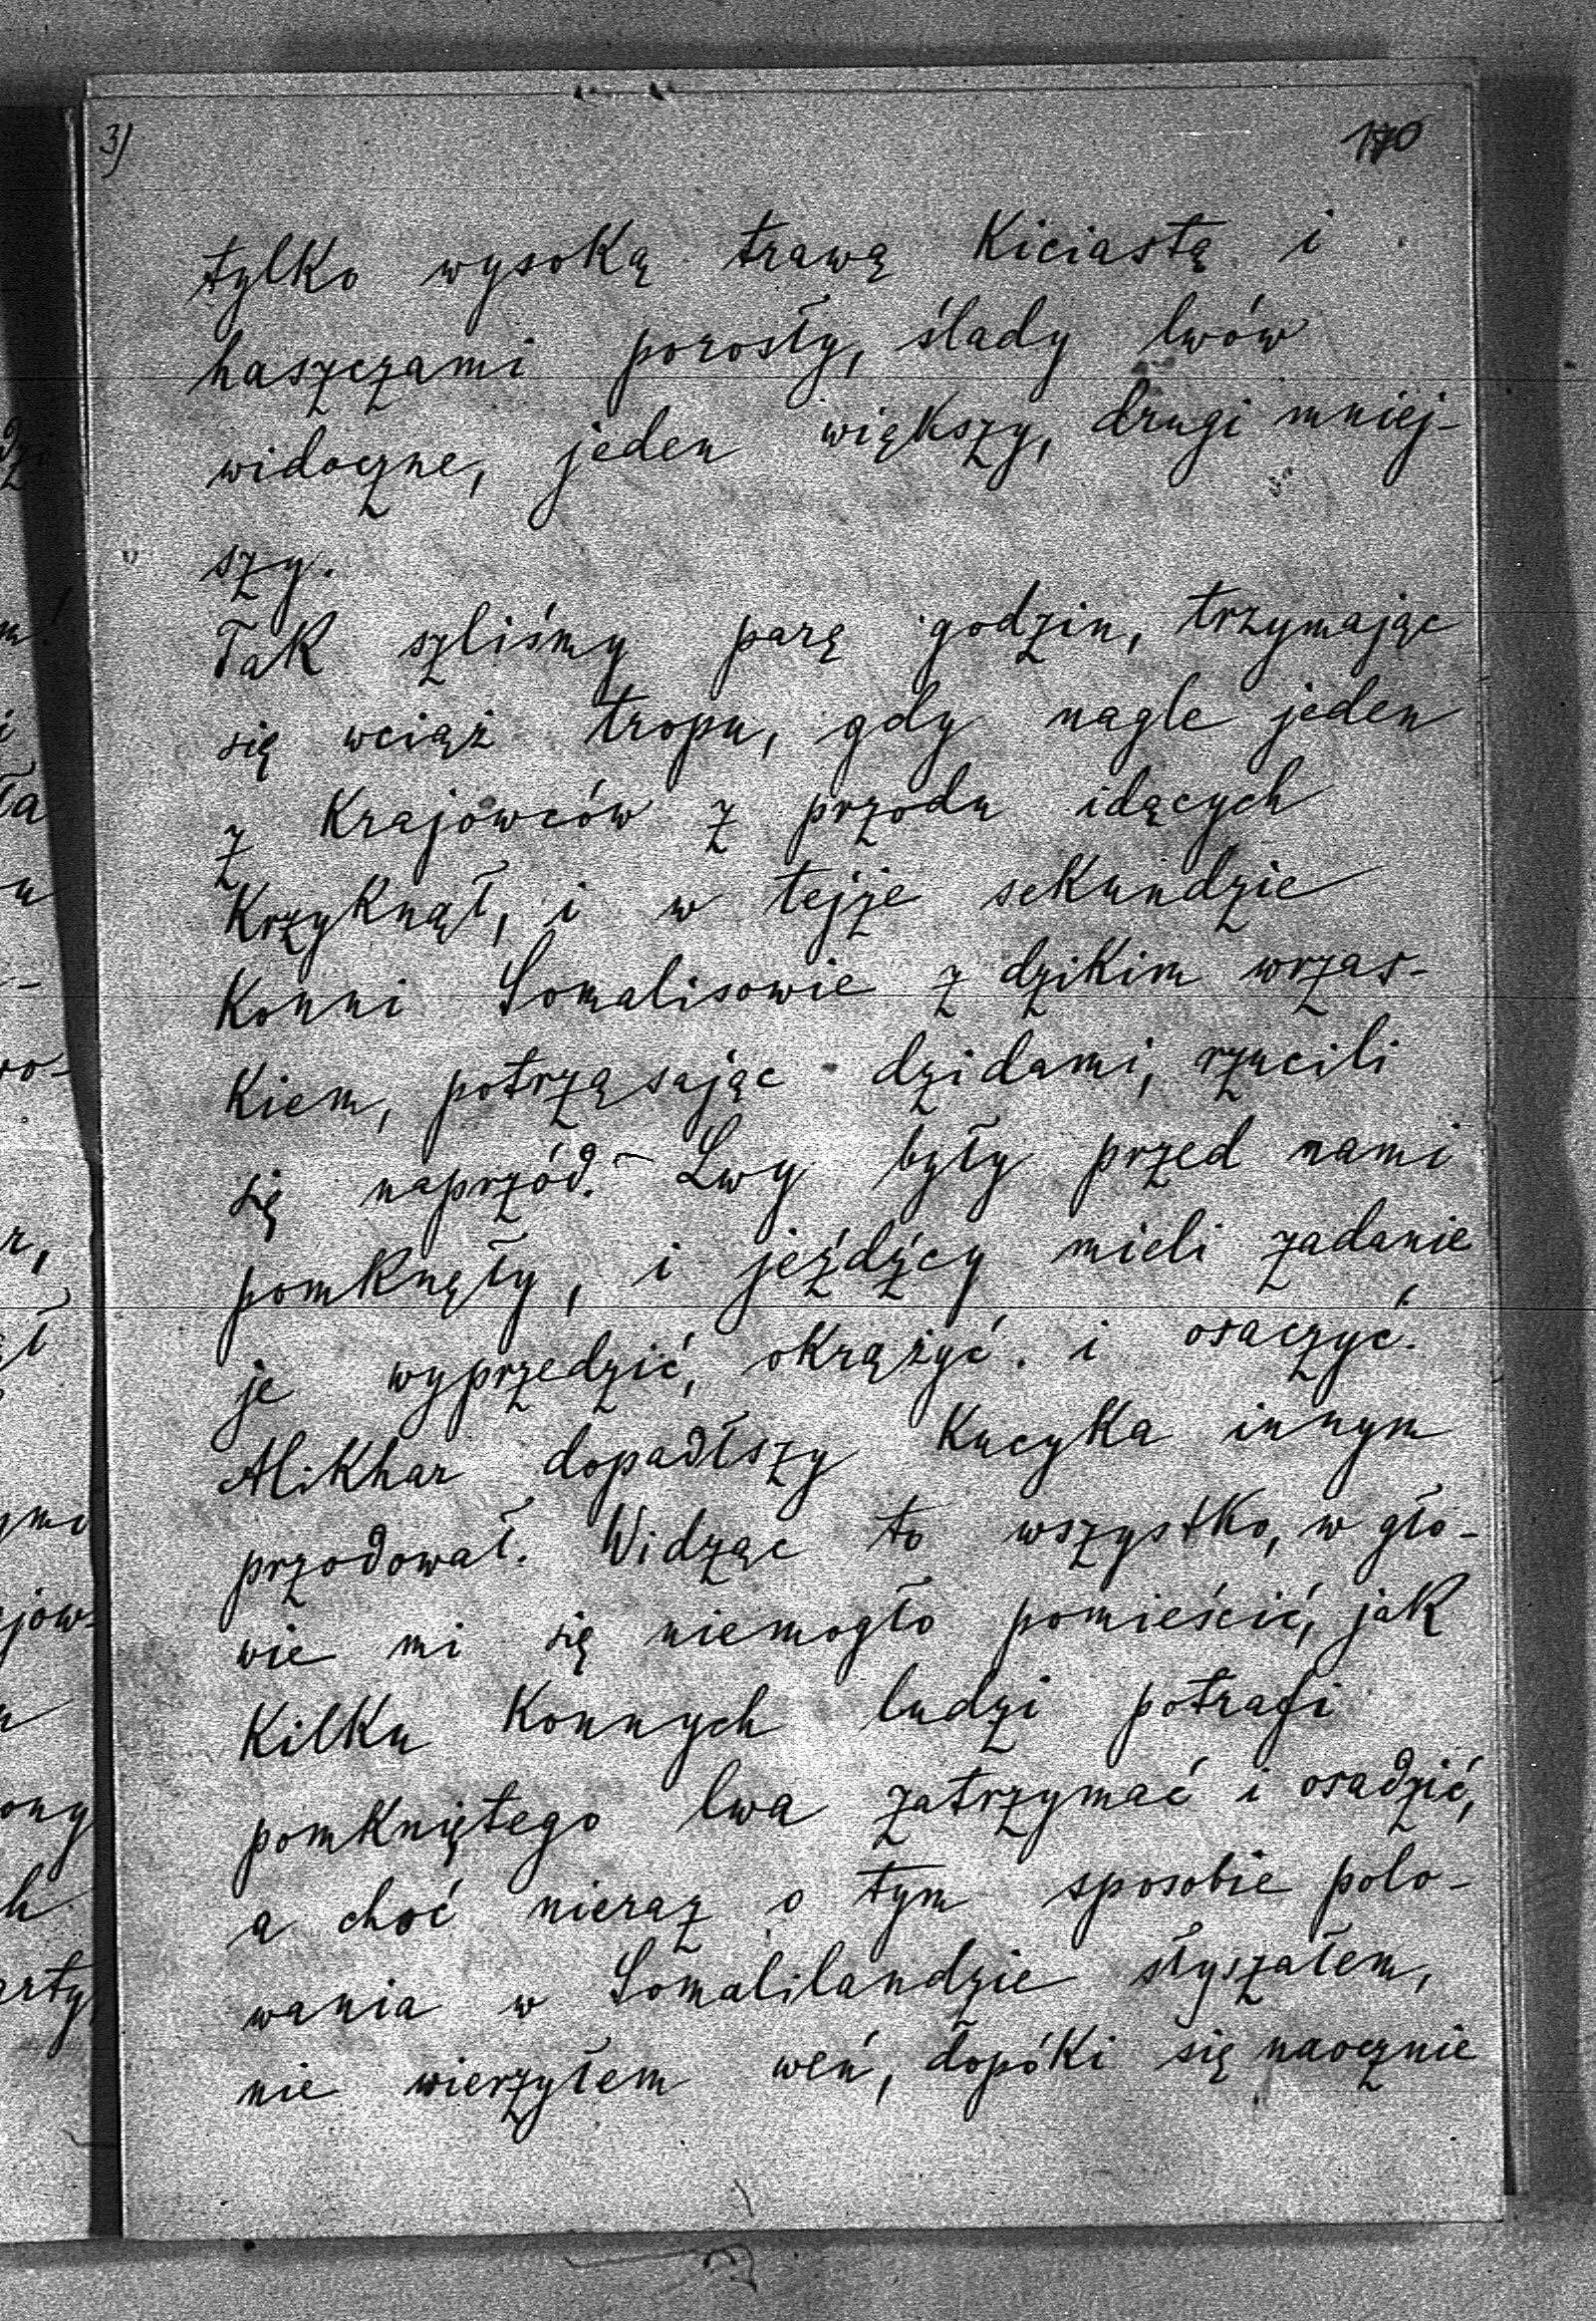 3)
170
tylko wysoką trawą Kiciastą i
haszczami porosły, ślady lwów
widoczne, jeden większy, drugi mniej-
szy.
Tak szliśmy parę godzin, trzymając
się wciąż tropu, gdy nagle jeden
z Krajowców z przodu idących
Krzyknął, i w tejże sekundzie
Konni Somalisowie z dzikim wrzas-
Kiem, potrząsając dzidami, rzucili
się naprzód. – Lwy były przed nami
pomknęły, i jeźdźcy mieli zadanie
je wyprzedzić, okrążyć i osaczyć.
Alikhar dopadłszy Kucyka innym
przodował. Widząc to wszystko, w gło-
wie mi się niemogło pomieścić, jak
Kilku Konnych ludzi potrafi
pomkniętego lwa zatrzymać i osadzić,
a choć nieraz o tym sposobie polo-
wania w Somalilandzie słyszałem,
nie wierzyłem weń, dopóki się naocznie